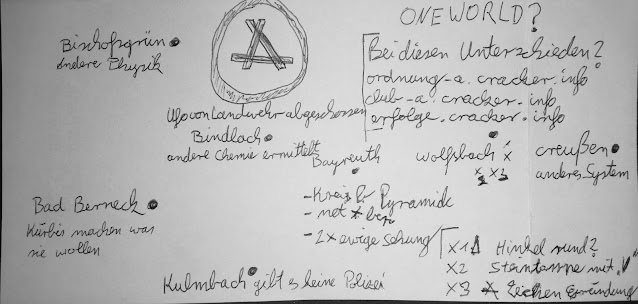 ONEWORLD?
Bischofsgrün
andere Physik
Bei diesen Unterschieden?
ordnung-a.cracker.info
club-a.cracker.info
erfolge.cracker.info
Ufo von Landwehr abgeschossen
Bindlach
andere Chemie ermittelt
Bayreuth
wolfsbach x
x x
creußen
anderes System
Bad Berneck
Kürbis machen was
sie wollen
- Kreis & Pyramide
- net
- 2x ewige
x1 Hinkel rund?
x2 Steintempe mit „V"
x3 Zeichen
Kulmbach gibt es keine Polizei